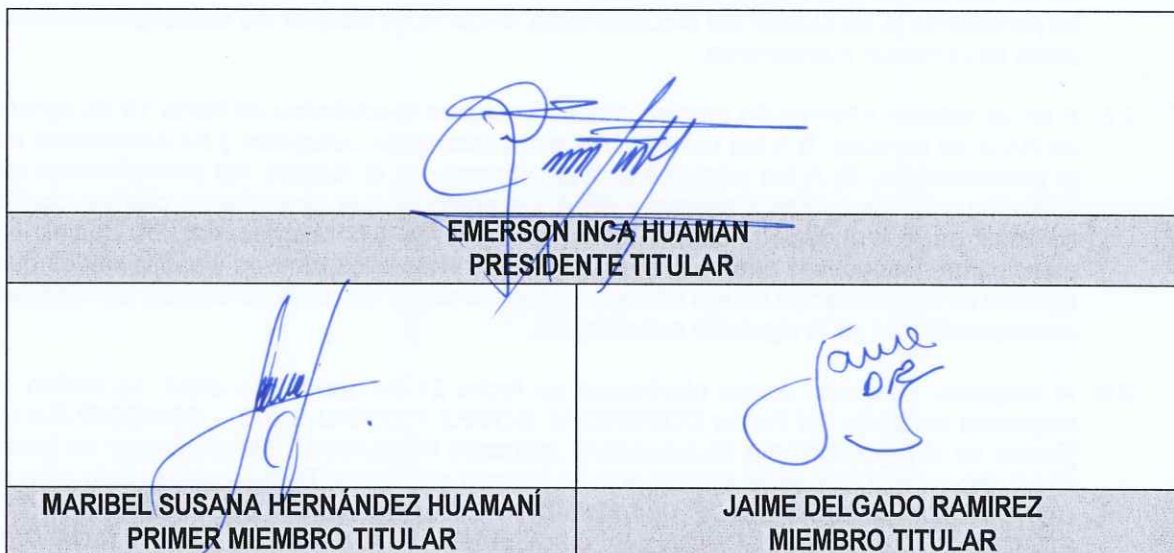 EMERSON INCA HUAMAN
PRESIDENTE TITULAR
Jaime
DR
MARIBEL SUSANA HERNÁNDEZ HUAMANÍ
PRIMER MIEMBRO TITULAR
JAIME DELGADO RAMIREZ
MIEMBRO TITULAR